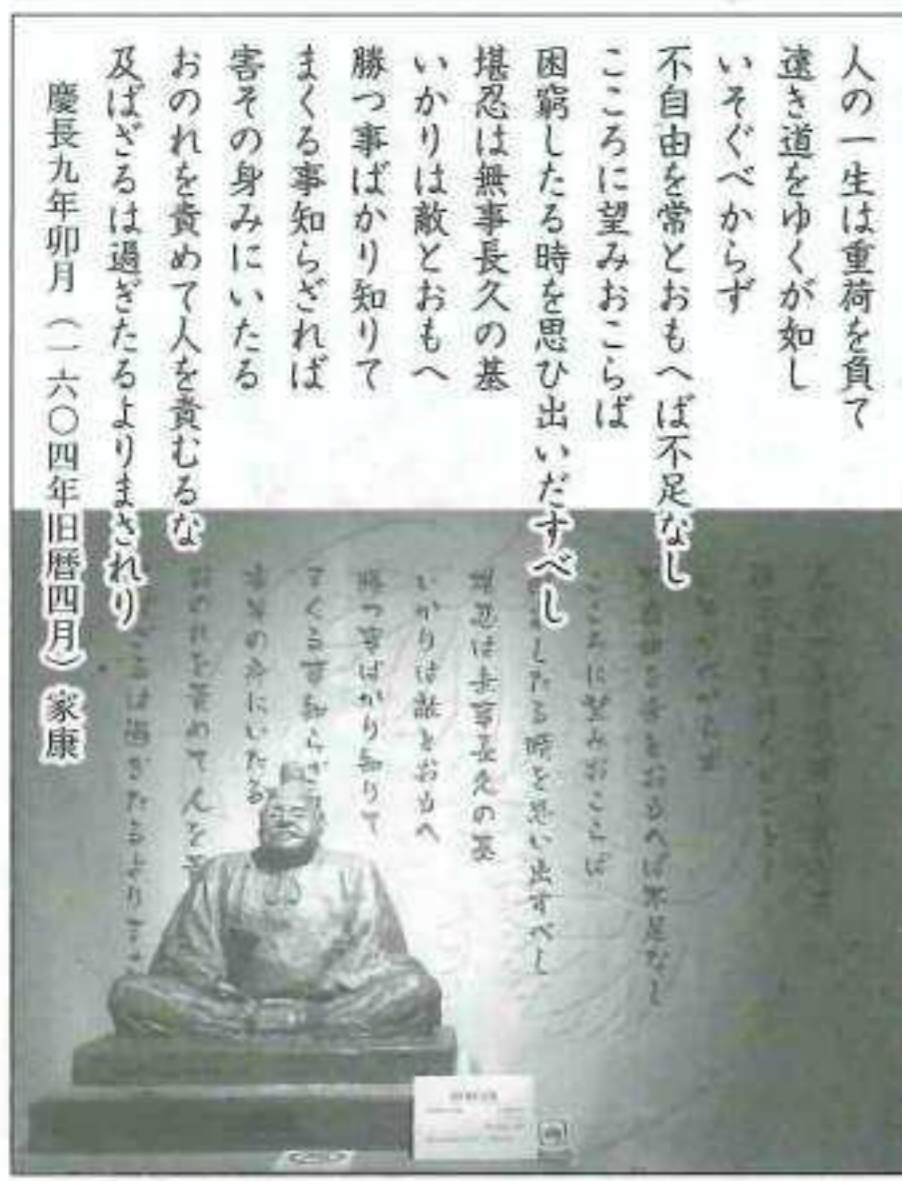 人の一生は重荷を負て
遠き道をゆくが如し
いそぐべからず
不自由を常とおもへば不足なし
こころに望みおこらば
困窮したる時を思ひ出いだすべし
堪忍は無事長久の基
いかりは敵とおもへ
勝つ事ばかり知りて
まくる事知らざれば
害その身みにいたる
おのれを責めて人を責むるな
及ばざるは過ぎたるよりまされり
慶長九年卯月（一六〇四年旧暦四月）家康
をおもへば不足なし
こころに望みおこらば
したる時を思い出すべし
堪忍は無事長久の基
いかりは敵とおもへ
勝つ事ばかり知りて
まくる事知らざ
害その身にいたる
おのれを責めて人を
は過ぎたるより